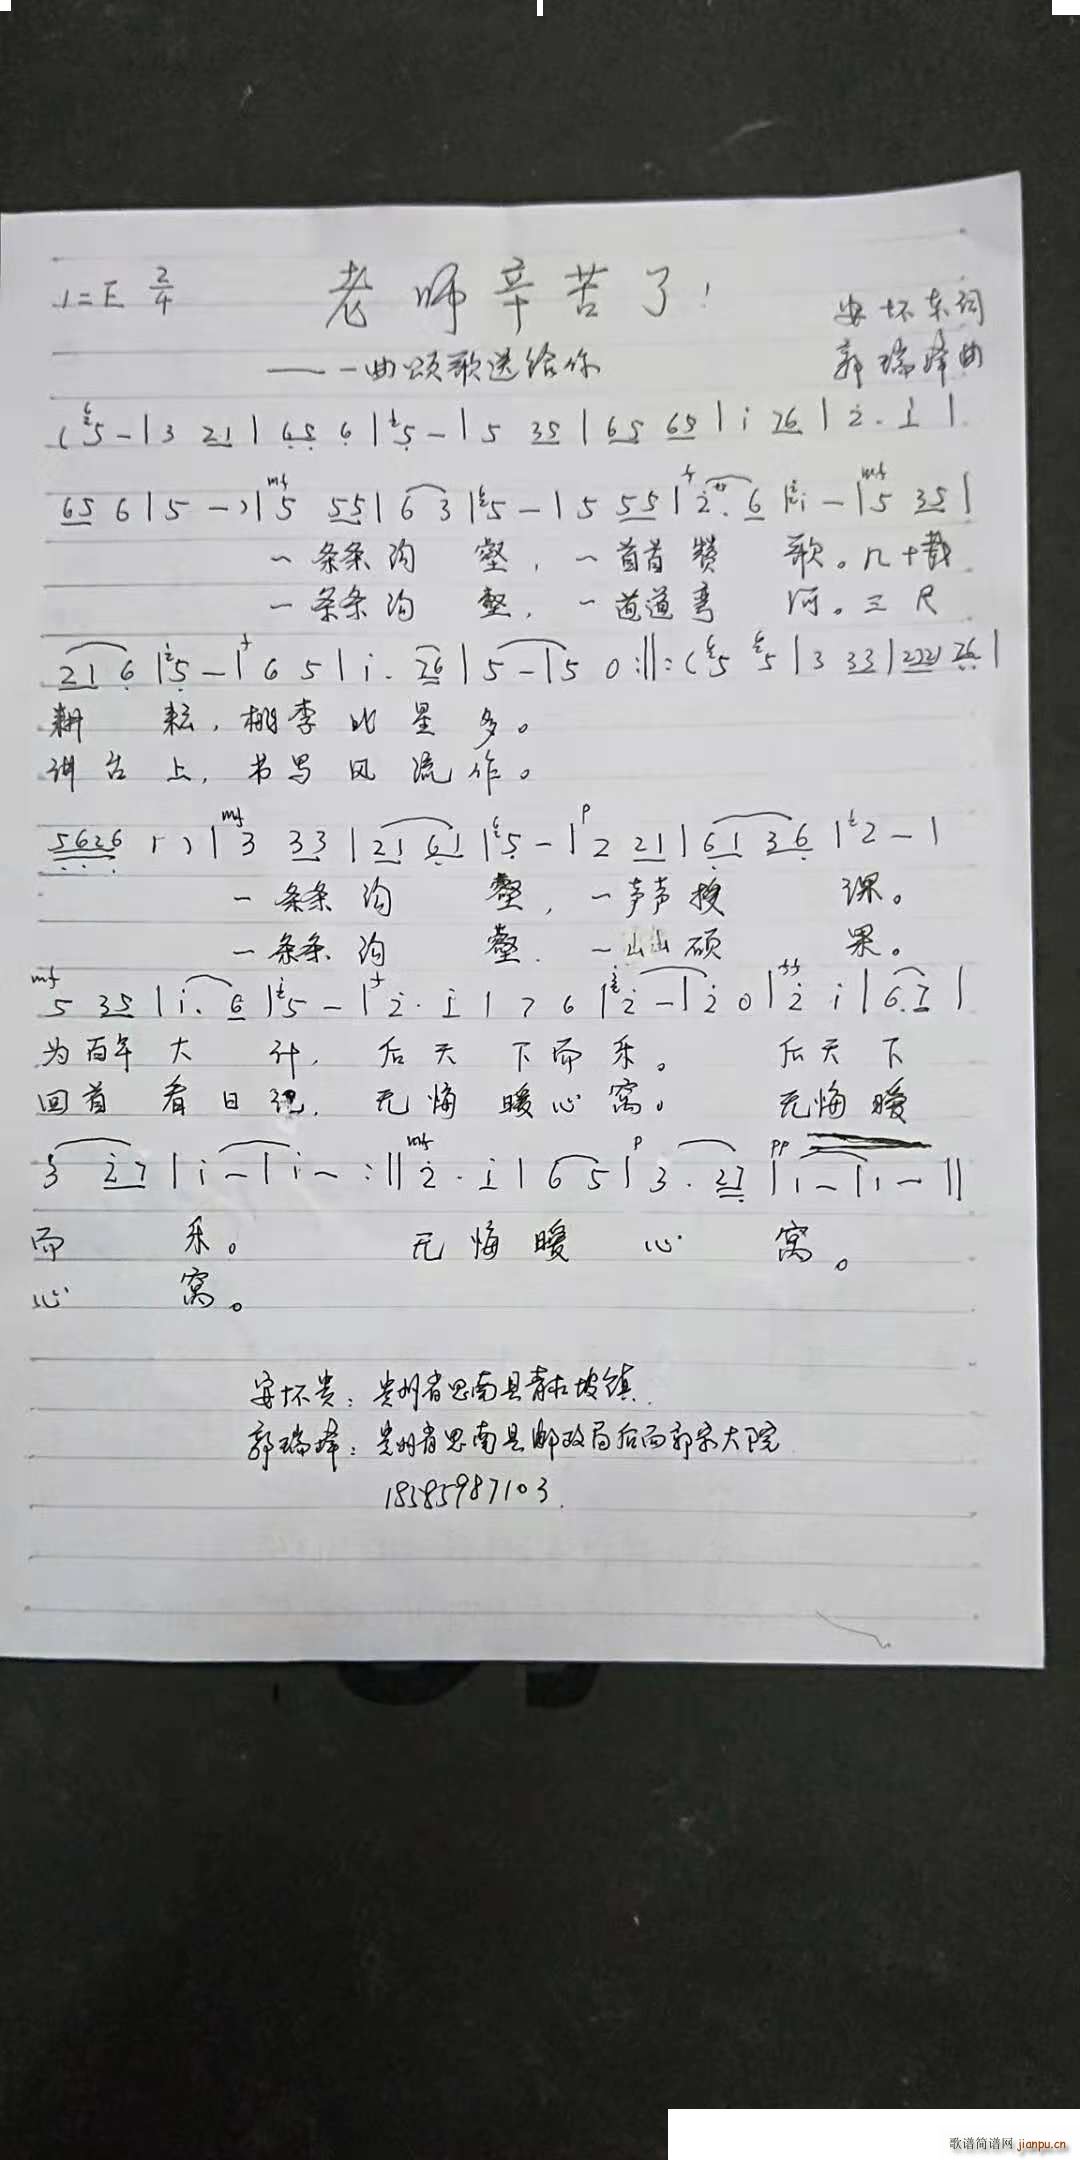 1=E 2/4 老师辛苦了！
——一曲颂歌送给你
安怀东词
郭瑞峰曲
( 5 - | 3 21 | 65 6 | 5 - | 5 35 | 65 65 | i 76 | 2 . i |
65 6 | 5 - ) | mf 5 55 | 6 3 | 5 - | 5 55 | f 2 . 6 | i - | mf 5 35 |
一条条沟 壑，一首首赞 歌。几十载
一条条沟 壑，一道道弯 河。三尺
21 6 | 5 - | f 6 5 | i . 26 | 5 - | 5 0 :||: ( 5 5 | 3 33 | 2221 76 |
耕 耘，桃李比星多。
讲台上，书写风流作。
5626 1 ) | mf 3 33 | 21 61 | 5 - | p 2 21 | 61 36 | 2 - |
一条条沟 壑，一声声授 课。
一条条沟 壑. 一山山硕 果。
mf 5 35 | i . 6 | 5 - | f 2 . i | 7 6 | 2 - | 2 0 | ff 2 i | 6 . 7 |
为百年大计，后天下而乐。 后天下
回首看日记，无悔暖心窝。 无悔暖
3 27 | i - | i - :|| mf 2 . i | 6 5 | p 3 . 27 | pp 1 - | 1 - ||
而 乐。 无悔暖心窝。
心 窝。
安怀贵：贵州省思南县青杠坡镇.
郭瑞峰：贵州省思南县邮政局后面郭家大院
18585987103.
歌谱简谱网 jianpu.cn